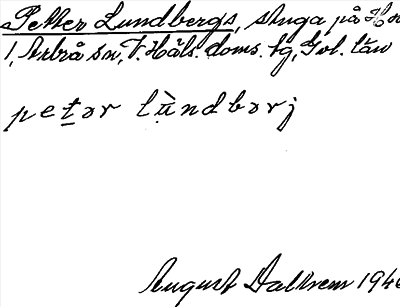 Petter Lundbergs, stuga på Hn
1, Arbrå sn, V. Häls. doms. tg, Gvl. län
petər lùndbərj
August Dalhem 1946